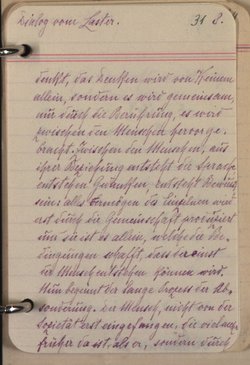 Dialog vom Laster. 31 8.
denkt, das Denken wird von Keinem
allein, sondern es wird gemeinsam,
nur durch die Berührung, es wird
zwischen den Menschen hervorge-
bracht. Zwischen den Menschen, aus
ihrer Beziehung entsteht die Sprache
entstehen Gedanken, entsteht Bewusst
sein. alles Vermögen des Einzelnen wird
erst durch die Gemeinschaft produziert
und sie ist es allein, welche die Be-
dingungen schafft, dass der einst
der Mensch entstehen können wird.
Nun beginnt der lange Prozess der Ab-
sonderung. Der Mensch, nicht von der
Societät erst eingefangen, die vielmehr
früher da ist, als er, sondern durch